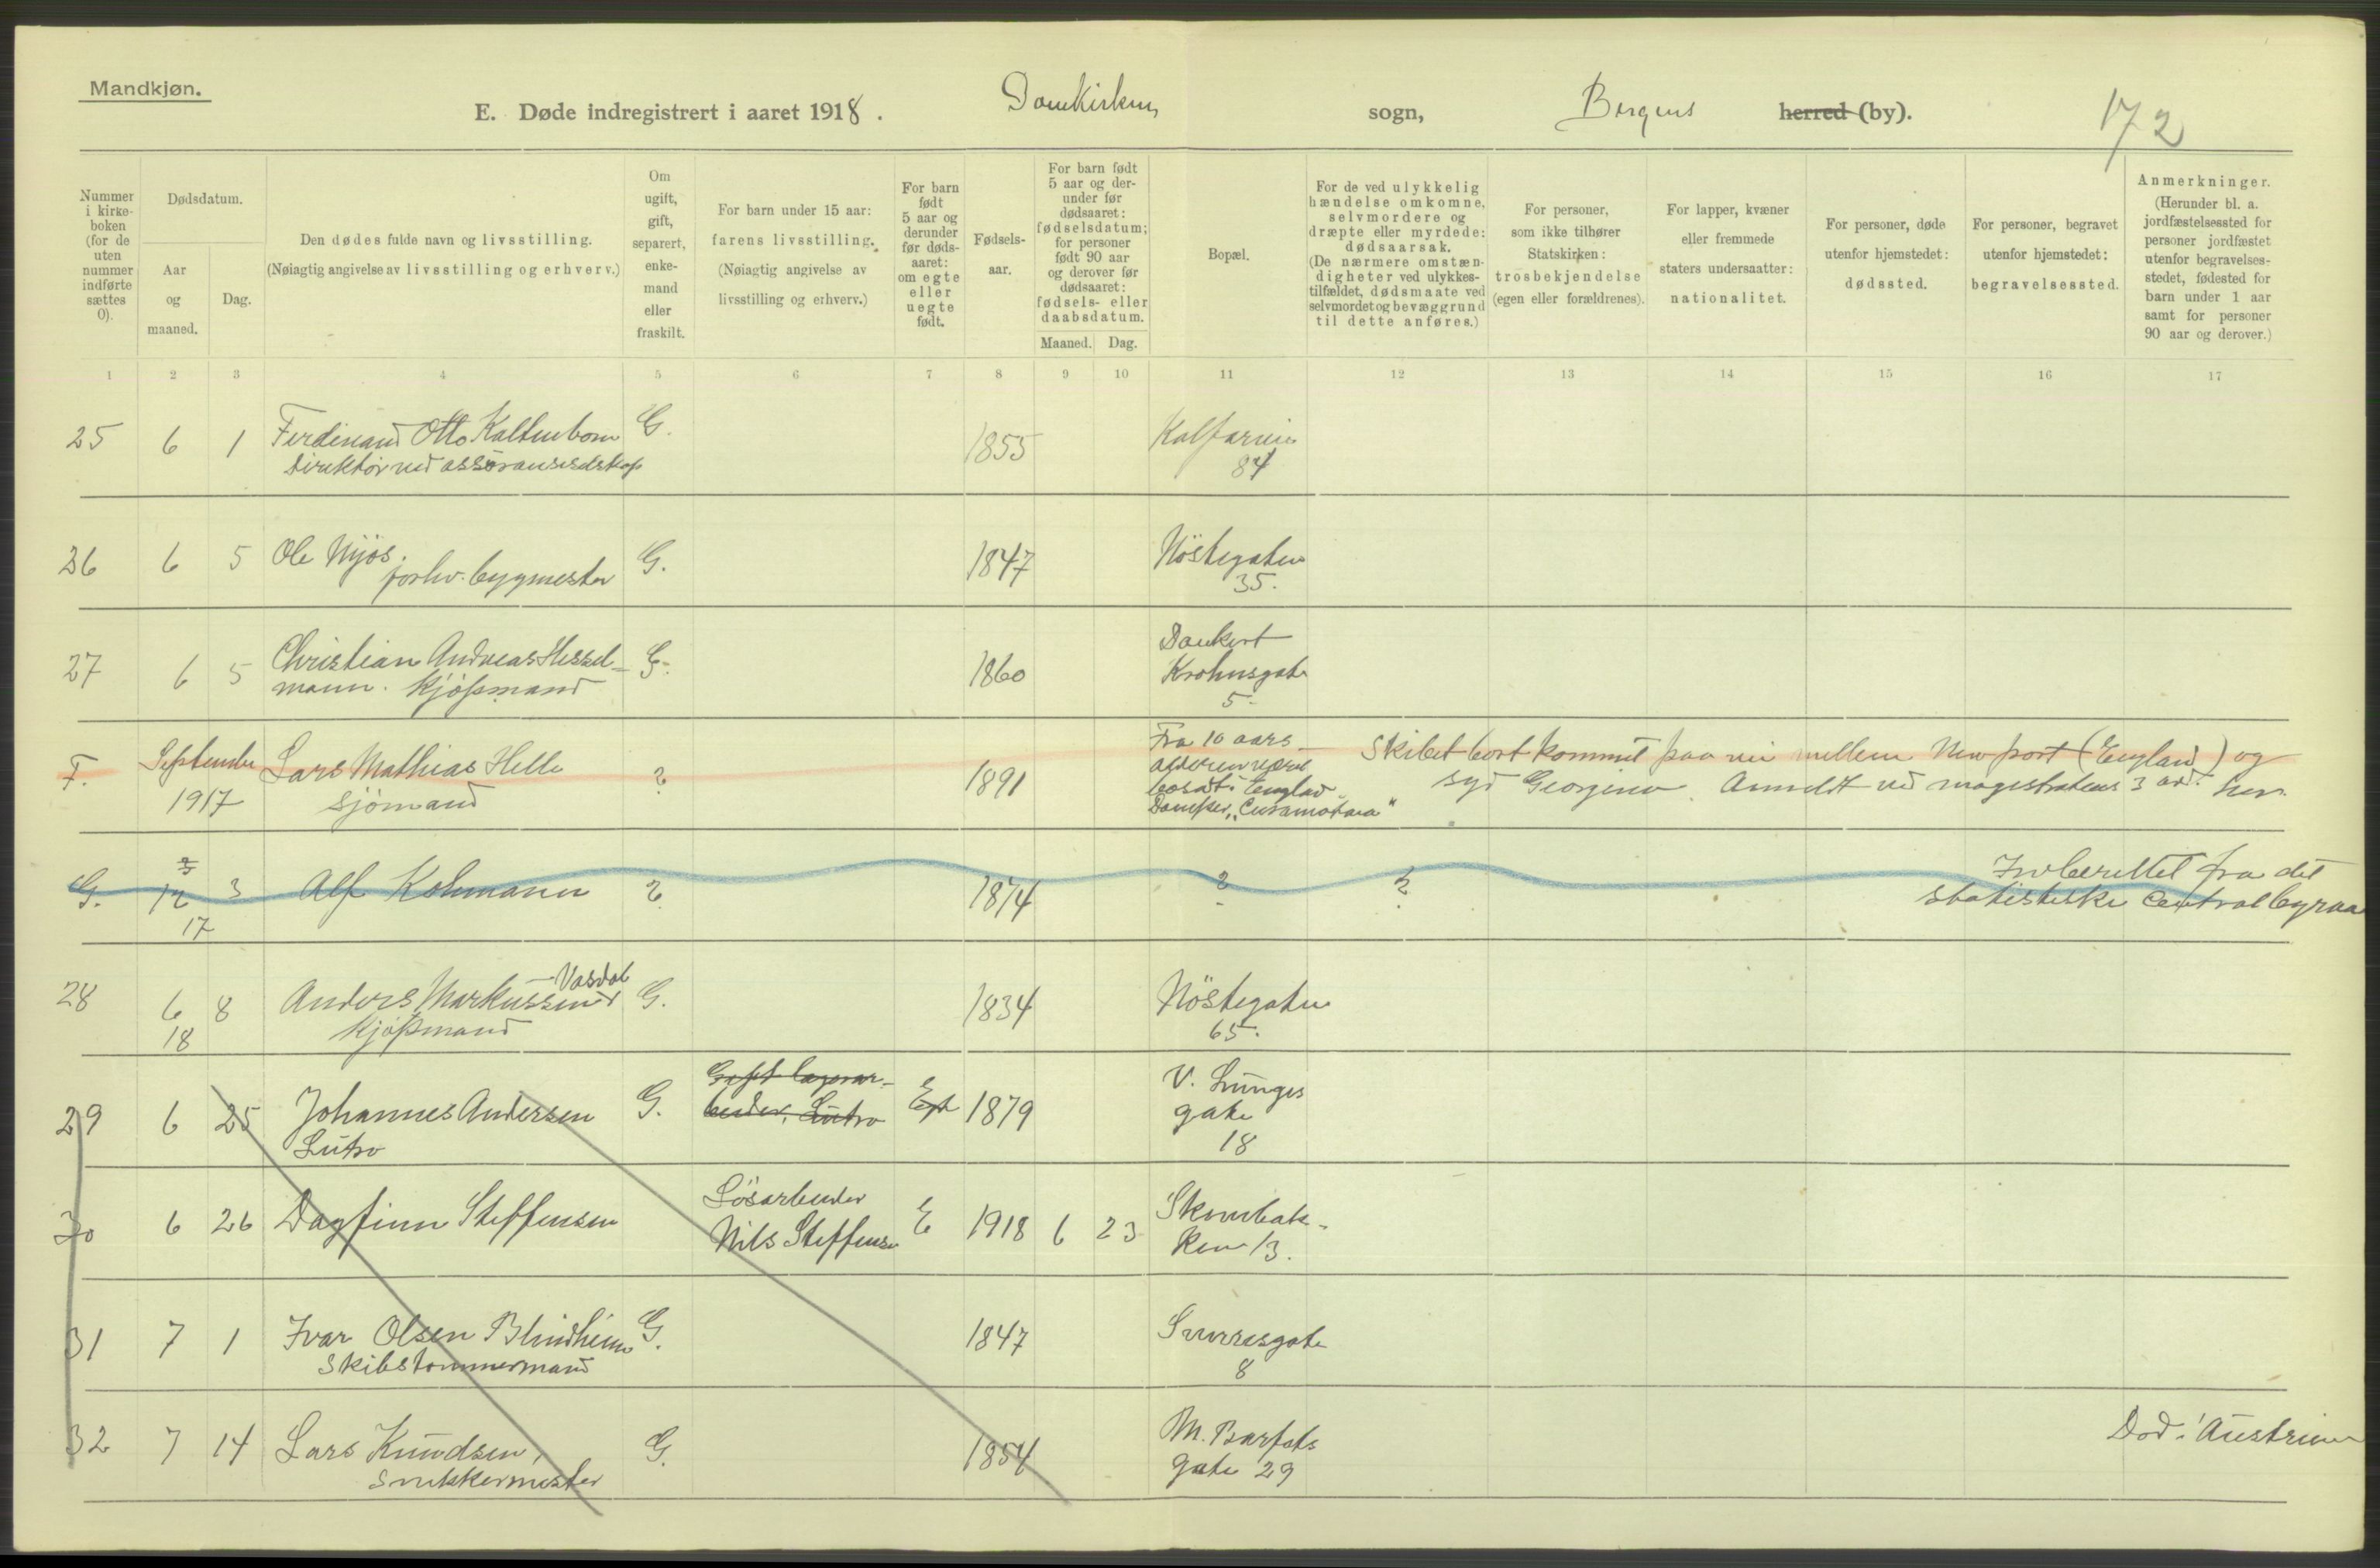 Mandkjøn.
E. Døde indregistrert i aaret 1918. Domkirken sogn, Bergens herred (by). 172
Nummer i kirkeboken (for de uten nummer indførte sættes 0).
Dødsdatum.
Aar og maaned.
Dag.
Den dødes fulde navn og livsstilling.
(Nøiagtig angivelse av livsstilling og erhverv.)
Om ugift, gift, separert, enkemand eller fraskilt.
For barn under 15 aar: farens livsstilling.
(Nøiagtig angivelse av livsstilling og erhverv.)
For barn født 5 aar og derunder før dødsaaret: om egte eller uegte født.
Fødselsaar.
For barn født 5 aar og derunder før dødsaaret: fødselsdatum; for personer født 90 aar og derover før dødsaaret: fødsels- eller daabsdatum.
Maaned. Dag.
Bopæl.
For de ved ulykkelig hændelse omkomne, selvmordere og dræpte eller myrdede: dødsaarsak.
(De nærmere omstændigheter ved ulykkestilfældet, dødsmaate ved selvmordet og bevæggrund til dette anføres.)
For personer, som ikke tilhører Statskirken: trosbekjendelse (egen eller forældrenes).
For lapper, kvæner eller fremmede staters undersaatter: nationalitet.
For personer, døde utenfor hjemstedet: dødssted.
For personer, begravet utenfor hjemstedet: begravelsessted.
Anmerkninger.
(Herunder bl. a. jordfæstelsessted for personer jordfæstet utenfor begravelsesstedet, fødested for barn under 1 aar samt for personer 90 aar og derover.)
1 2 3 4 5 6 7 8 9 10 11 12 13 14 15 16 17
25 6 1 Ferdinand Otto Kaltenborn G. 1855 Kalfarvein
Direktör ved assöranseselskap 84
26 6 5 Ole Nyös. G. 1847 Nöstegaten
forhv. bygmester 35.
27 6 5 Christian Andreas Hessel- G. 1860 Dankert
mann. Kjöpmand Krohnsgate
5.
F. September Lars Mathias Helle ? 1891 Fra 10 aars Skibet bortkommet paa vei mellem Newport (England) og
1917 sjömand alderen været syd Georgien. Anmeldt ved magistratens 3 avd. her.
bosat i England
Damper
G. 12 3 Alf Kohmann ? 1874 ? ? Indberettet fra det
17 statistiske Centralbyraa
28 6 8 Anders Markussen Vasdal G. 1834 Nöstegaten
18 Kjöpmand 65.
29 6 25 Johannes Andersen G. Egte 1879 V. Lunges
Lutro gate
18
30 6 26 Dagfinn Steffensen Lösarbeider E 1918 6 23 Skivebak-
Nils Steffensen ken 13.
31 7 1 Ivar Olsen Blindheim G. 1847 Sverresgate
Skibstømmermand 8
32 7 14 Lars Knudsen, G. 1854 M. Barfots Död i Austrien
Snekkermester gate 29